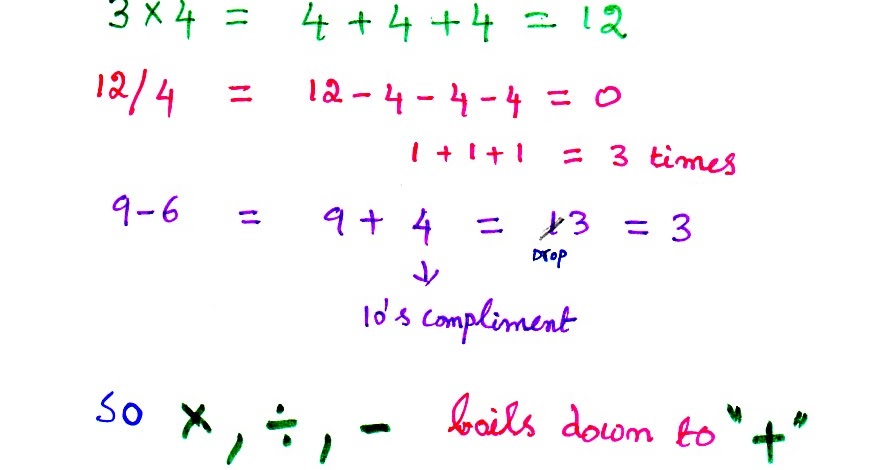 3 × 4 = 4 + 4 + 4 = 12
12/4 = 12 - 4 - 4 - 4 = 0
1 + 1 + 1 = 3 times
9-6 = 9 + 4 = 13 = 3
Drop
↓
10's compliment
So ×, ÷, - boils down to "+"